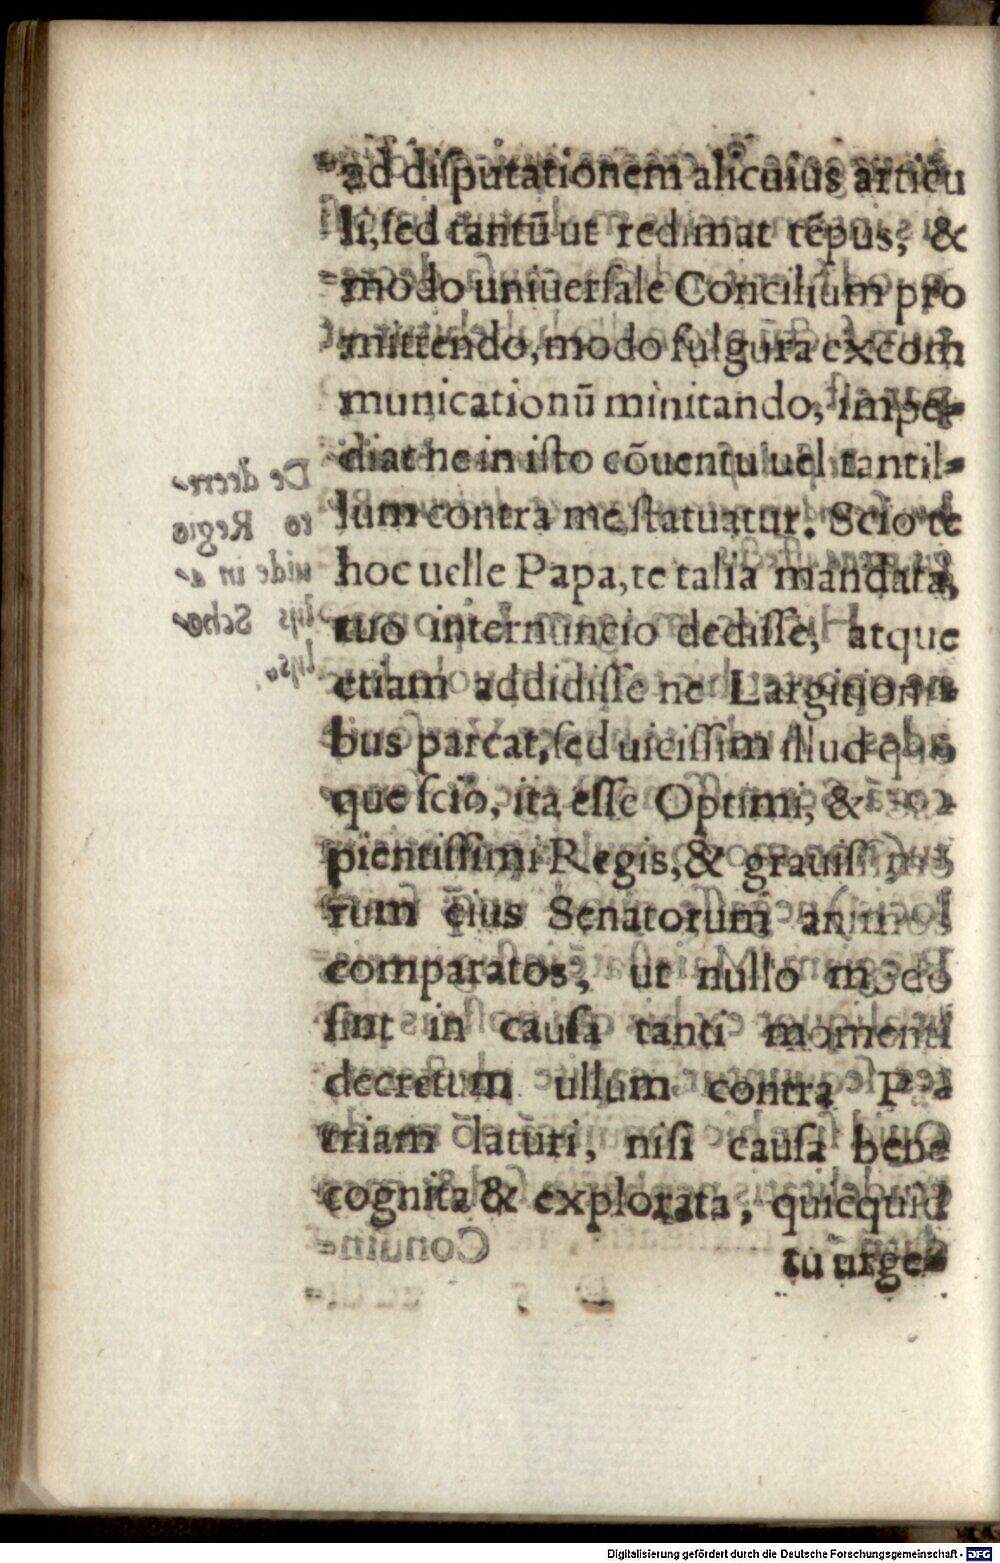 ad diſputationem alicuius articu
li, ſed tantū ut redimat tēpus, &
modo uniuerſale Concilium pro
mittendo, modo fulgura excom
municationū minitando, impe-
diat ne in iſto cōuentu uel tantil-
lum contra me ſtatuatur. Scio te
hoc uelle Papa, te talia mandata,
tuo internuncio dediſſe, atque
etiam addidiſſe ne Largitioni-
bus parcat, ſed uiciſſim illud quo
que ſcio, ita eſſe Optimi, &
pientiſſimi Regis, & grauiſſimo
rum eius Senatorum animos
comparatos, ut nullo modo
ſint in cauſa tanti momenti
decretum ullum contra Pa
triam laturi, niſi cauſa bene
cognita & explorata, quicquid
tu urge-
Digitalisierung gefördert durch die Deutsche Forschungsgemeinschaft - DFG